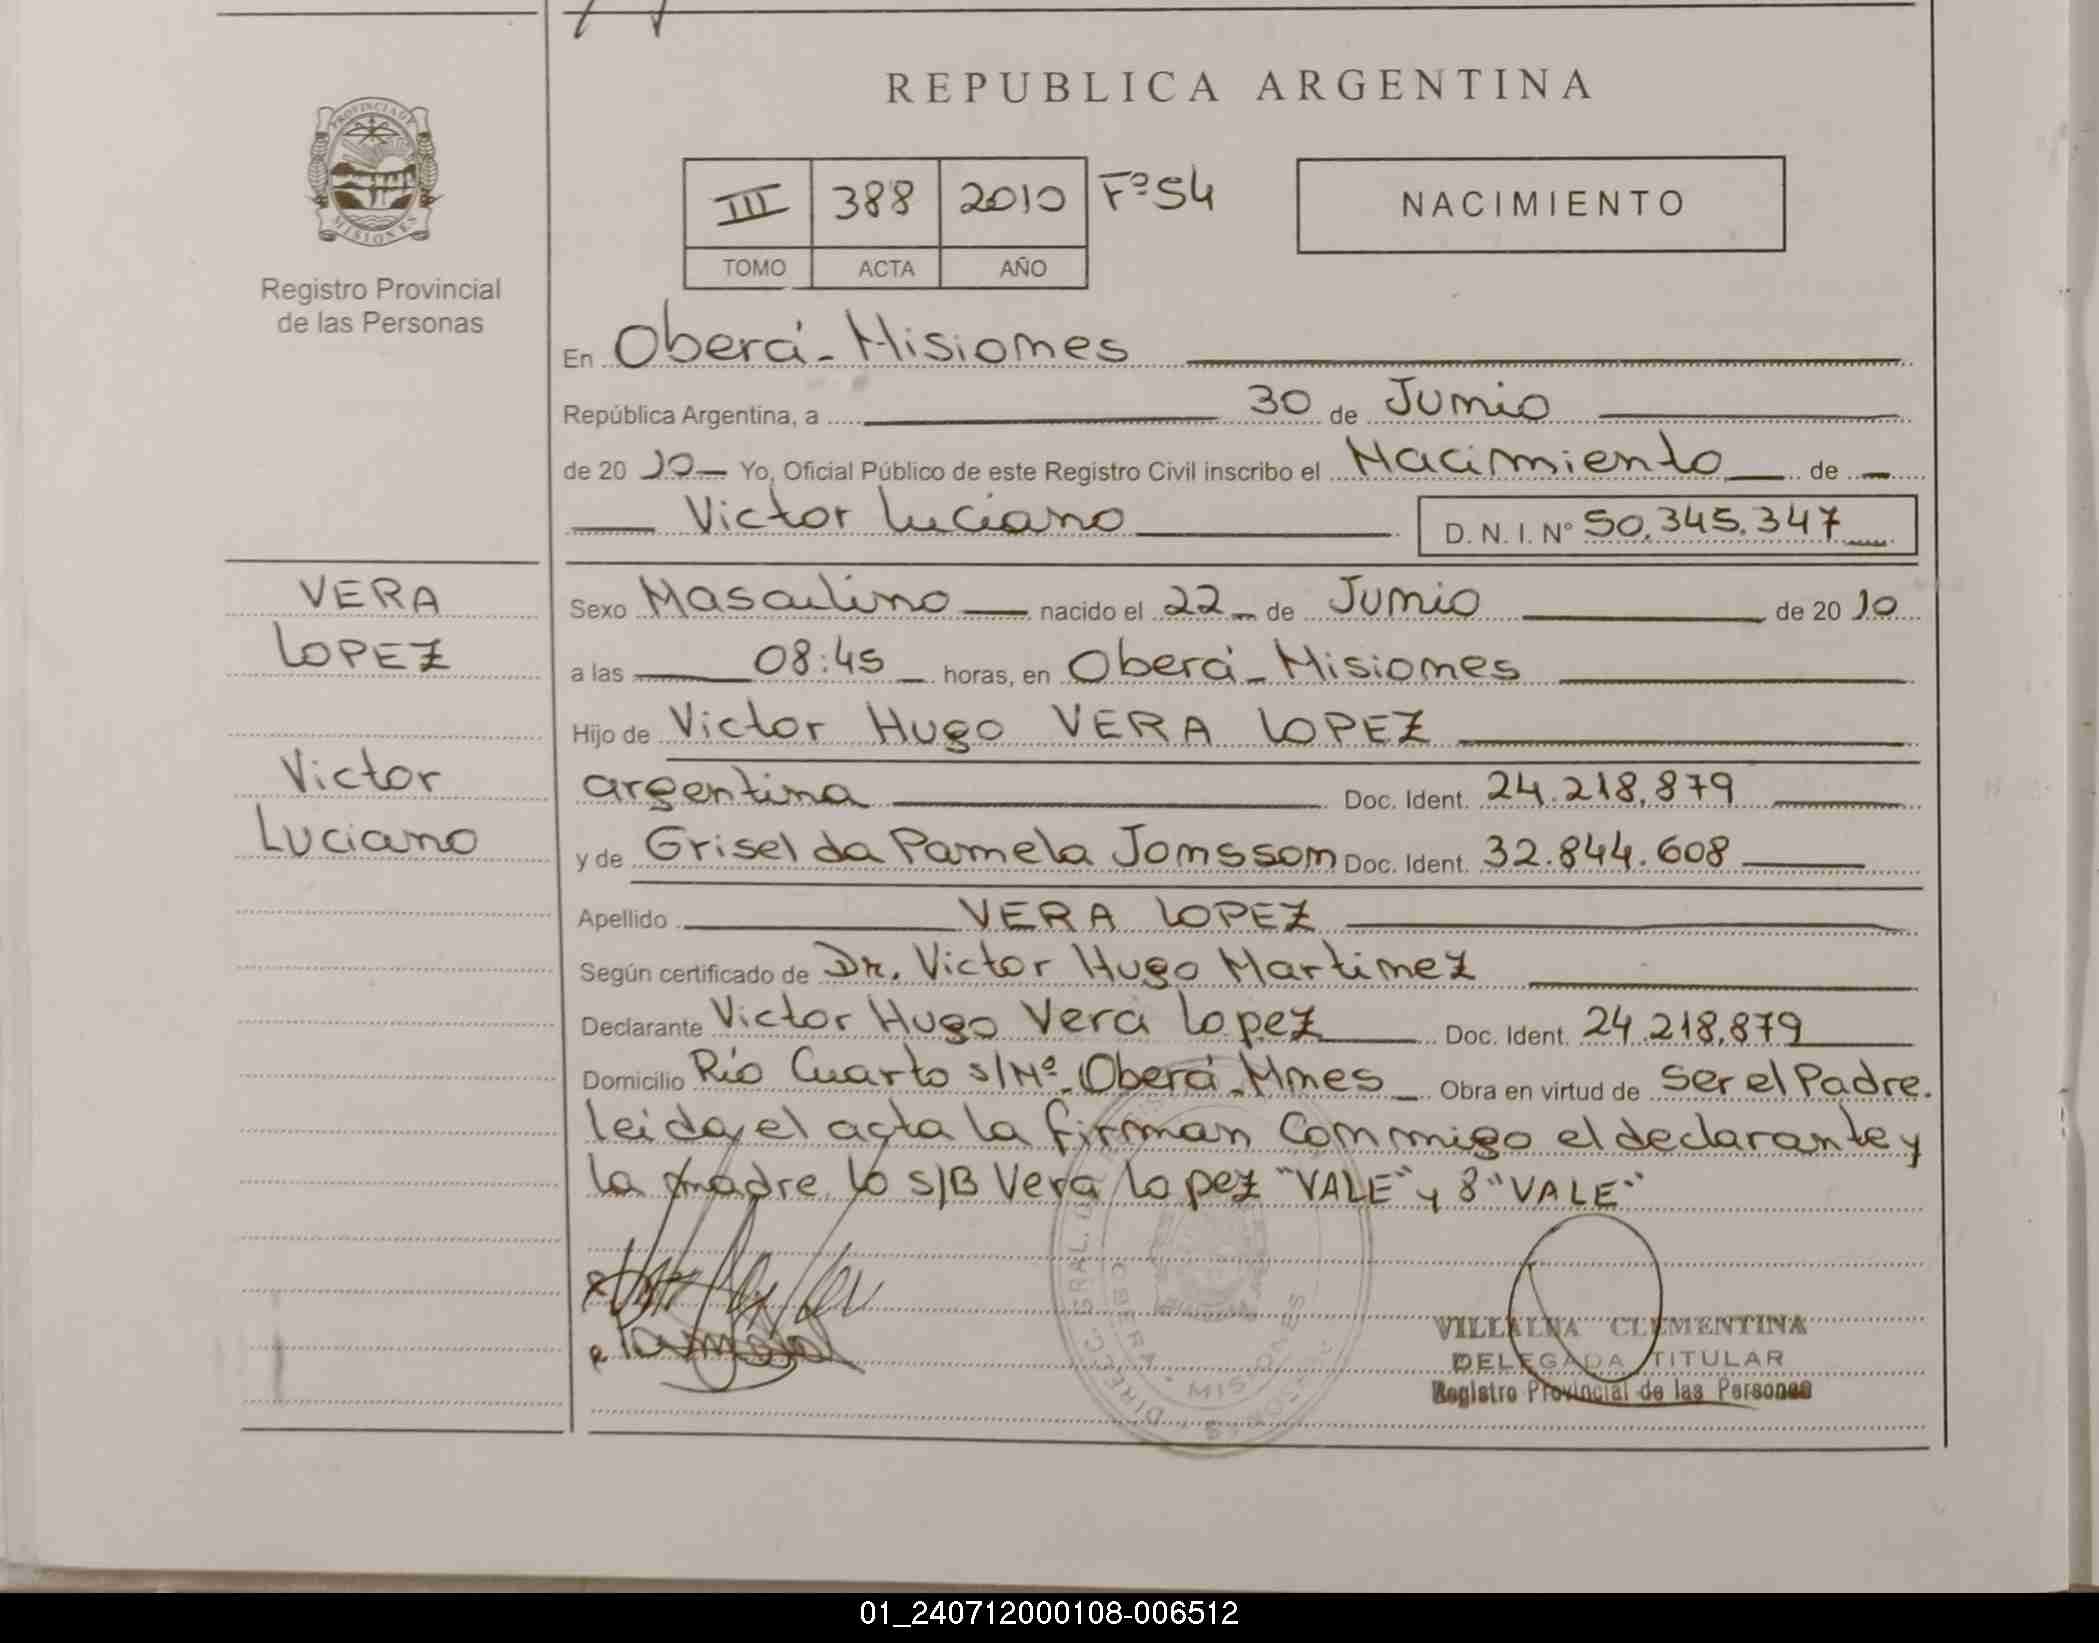 REPUBLICA ARGENTINA
PROVINCIA DE MISIONES
Registro Provincial
de las Personas
III 388 2010 Fº 54
TOMO ACTA AÑO
NACIMIENTO
En Oberá - Misiones
República Argentina, a 30 de Junio
de 20 10 Yo, Oficial Público de este Registro Civil inscribo el Nacimiento de
Victor Luciano D. N. I. Nº 50.345.347
VERA
LOPEZ
Victor
Luciano
Sexo Masculino nacido el 22 de Junio de 20 10
a las 08:45 horas, en Oberá - Misiones
Hijo de Victor Hugo VERA LOPEZ
argentina Doc. Ident. 24.218.879
y de Griselda Pamela Jonsson Doc. Ident. 32.844.608
Apellido VERA LOPEZ
Según certificado de Dr. Victor Hugo Martinez
Declarante Victor Hugo Vera Lopez Doc. Ident. 24.218.879
Domicilio Río Cuarto s/Nº. Oberá - Mnes Obra en virtud de ser el Padre.
leida el acta la firman conmigo el declarante y
la madre lo s/B Vera Lopez "VALE" y 8 "VALE"
OBERA - MISIONES
VILLALBA CLEMENTINA
DELEGADA TITULAR
Registro Provincial de las Personas
01_240712000108-006512